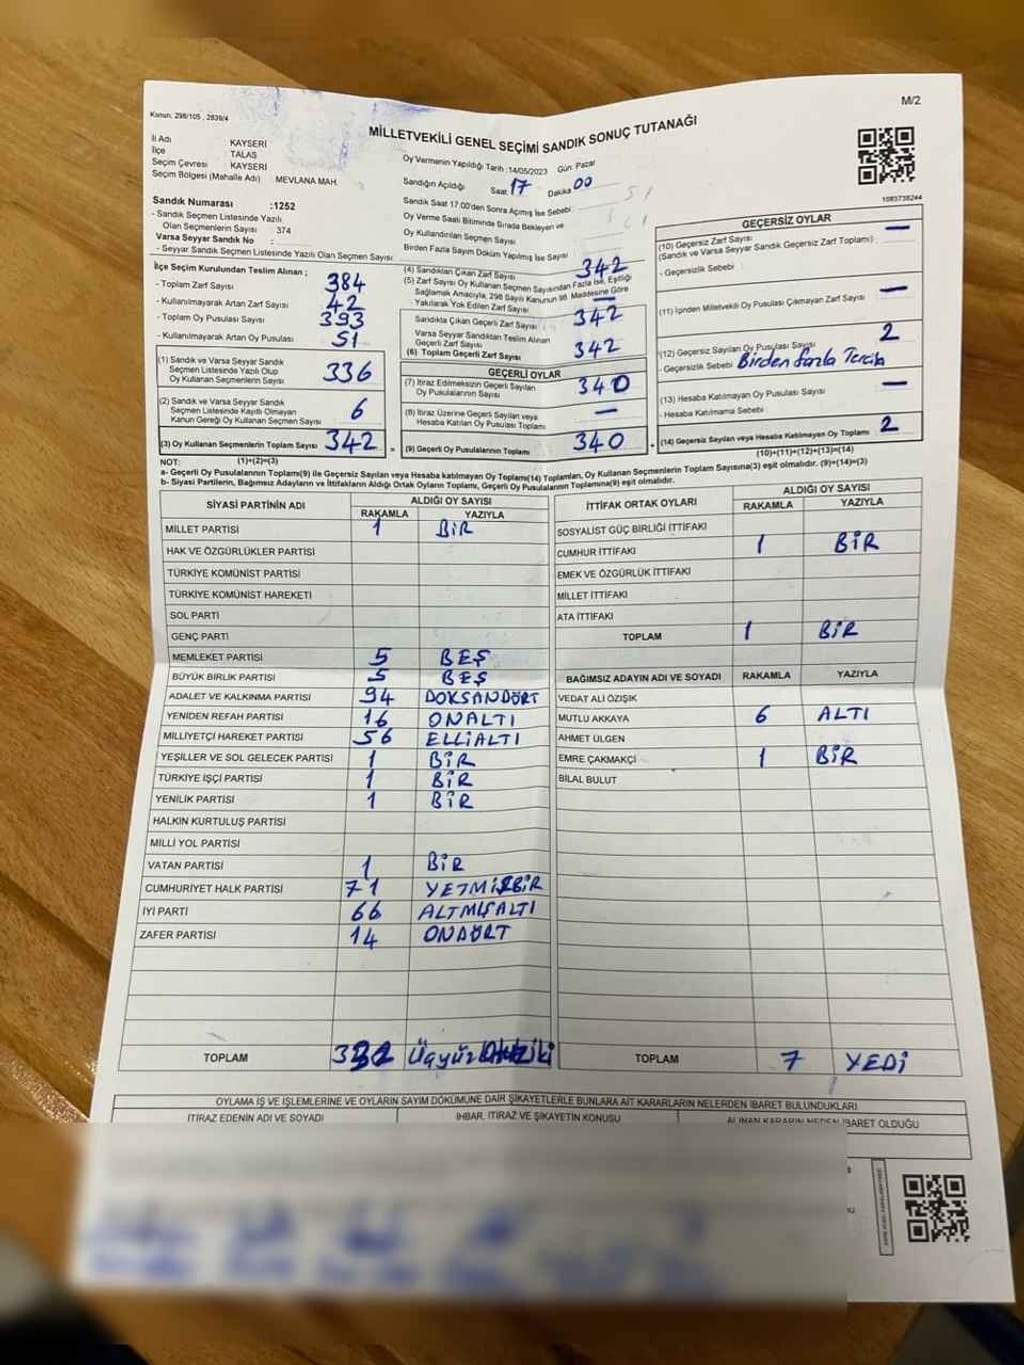 M/2
Kanun, 298/105 , 2839/4
MİLLETVEKİLİ GENEL SEÇİMİ SANDIK SONUÇ TUTANAĞI
İl Adı KAYSERİ
İlçe TALAS
Seçim Çevresi KAYSERİ
Seçim Bölgesi (Mahalle Adı) MEVLANA MAH.
Sandık Numarası :1252
- Sandık Seçmen Listesinde Yazılı
Olan Seçmenlerin Sayısı 374
Varsa Seyyar Sandık No :
- Seyyar Sandık Seçmen Listesinde Yazılı Olan Seçmen Sayısı
Oy Vermenin Yapıldığı Tarih :14/05/2023 Gün: Pazar
Sandığın Açıldığı Saat 17 Dakika 00
Sandık Saat 17.00'den Sonra Açılmış İse Sebebi :
Oy Verme Saati Bitiminde Sırada Bekleyen ve
Oy Kullandırılan Seçmen Sayısı
Birden Fazla Sayım Döküm Yapılmış İse Sayısı
1083738244
İlçe Seçim Kurulundan Teslim Alınan ;
- Toplam Zarf Sayısı 384
- Kullanılmayarak Artan Zarf Sayısı 42
- Toplam Oy Pusulası Sayısı 393
- Kullanılmayarak Artan Oy Pusulası 51
(1) Sandık ve Varsa Seyyar Sandık
Seçmen Listesinde Yazılı Olup
Oy Kullanan Seçmenlerin Sayısı 336
(2) Sandık ve Varsa Seyyar Sandık
Seçmen Listesinde Kayıtlı Olmayan
Kanun Gereği Oy Kullanan Seçmen Sayısı 6
(3) Oy Kullanan Seçmenlerin Toplam Sayısı 342 =
(4) Sandıktan Çıkan Zarf Sayısı 342
(5) Zarf Sayısı Oy Kullanan Seçmen Sayısından Fazla İse, Eşitliği
Sağlamak Amacıyla, 298 Sayılı Kanunun 98. Maddesine Göre
Yakılarak Yok Edilen Zarf Sayısı —
Sandıkta Çıkan Geçerli Zarf Sayısı 342
Varsa Seyyar Sandıktan Teslim Alınan
Geçerli Zarf Sayısı
(6) Toplam Geçerli Zarf Sayısı 342
GEÇERLİ OYLAR
(7) İtiraz Edilmeksizin Geçerli Sayılan
Oy Pusulalarının Sayısı 340
(8) İtiraz Üzerine Geçerli Sayılan veya
Hesaba Katılan Oy Pusulası Toplamı —
(9) Geçerli Oy Pusulalarının Toplamı 340 +
GEÇERSİZ OYLAR
(10) Geçersiz Zarf Sayısı —
(Sandık ve Varsa Seyyar Sandık Geçersiz Zarf Toplamı) :
- Geçersizlik Sebebi
(11) İçinden Milletvekili Oy Pusulası Çıkmayan Zarf Sayısı —
(12) Geçersiz Sayılan Oy Pusulası Sayısı 2
- Geçersizlik Sebebi Birden fazla Tercih
(13) Hesaba Katılmayan Oy Pusulası Sayısı —
- Hesaba Katılmama Sebebi
(14) Geçersiz Sayılan veya Hesaba Katılmayan Oy Toplamı 2
(10)+(11)+(12)+(13)=(14)
NOT: (1)+(2)=(3)
a- Geçerli Oy Pusulalarının Toplamı(9) ile Geçersiz Sayılan veya Hesaba katılmayan Oy Toplamı(14) Toplamları, Oy Kullanan Seçmenlerin Toplam Sayısına(3) eşit olmalıdır. (9)+(14)=(3)
b- Siyasi Partilerin, Bağımsız Adayların ve İttifakların Aldığı Ortak Oyların Toplamı, Geçerli Oy Pusulalarının Toplamına(9) eşit olmalıdır.
SİYASİ PARTİNİN ADI ALDIĞI OY SAYISI
RAKAMLA YAZIYLA
MİLLET PARTİSİ 1 BİR
HAK VE ÖZGÜRLÜKLER PARTİSİ
TÜRKİYE KOMÜNİST PARTİSİ
TÜRKİYE KOMÜNİST HAREKETİ
SOL PARTİ
GENÇ PARTİ
MEMLEKET PARTİSİ 5 BEŞ
BÜYÜK BİRLİK PARTİSİ 5 BEŞ
ADALET VE KALKINMA PARTİSİ 94 DOKSANDÖRT
YENİDEN REFAH PARTİSİ 16 ONALTI
MİLLİYETÇİ HAREKET PARTİSİ 56 ELLİALTI
YEŞİLLER VE SOL GELECEK PARTİSİ 1 BİR
TÜRKİYE İŞÇİ PARTİSİ 1 BİR
YENİLİK PARTİSİ 1 BİR
HALKIN KURTULUŞ PARTİSİ
MİLLİ YOL PARTİSİ
VATAN PARTİSİ 1 BİR
CUMHURİYET HALK PARTİSİ 71 YETMİŞBİR
İYİ PARTİ 66 ALTMIŞALTI
ZAFER PARTİSİ 14 ONDÖRT
TOPLAM 332 Üçyüz iki
İTTİFAK ORTAK OYLARI ALDIĞI OY SAYISI
RAKAMLA YAZIYLA
SOSYALİST GÜÇ BİRLİĞİ İTTİFAKI
CUMHUR İTTİFAKI 1 BİR
EMEK VE ÖZGÜRLÜK İTTİFAKI
MİLLET İTTİFAKI
ATA İTTİFAKI
TOPLAM 1 BİR
BAĞIMSIZ ADAYIN ADI VE SOYADI RAKAMLA YAZIYLA
VEDAT ALİ ÖZIŞIK
MUTLU AKKAYA 6 ALTI
AHMET ÜLGEN
EMRE ÇAKMAKÇİ 1 BİR
BİLAL BULUT
TOPLAM 7 YEDİ
OYLAMA İŞ VE İŞLEMLERİNE VE OYLARIN SAYIM DÖKÜMÜNE DAİR ŞİKAYETLERLE BUNLARA AİT KARARLARIN NELERDEN İBARET BULUNDUKLARI
İTİRAZ EDENİN ADI VE SOYADI İHBAR, İTİRAZ VE ŞİKAYETİN KONUSU ALINAN KARARIN NEDEN İBARET OLDUĞU